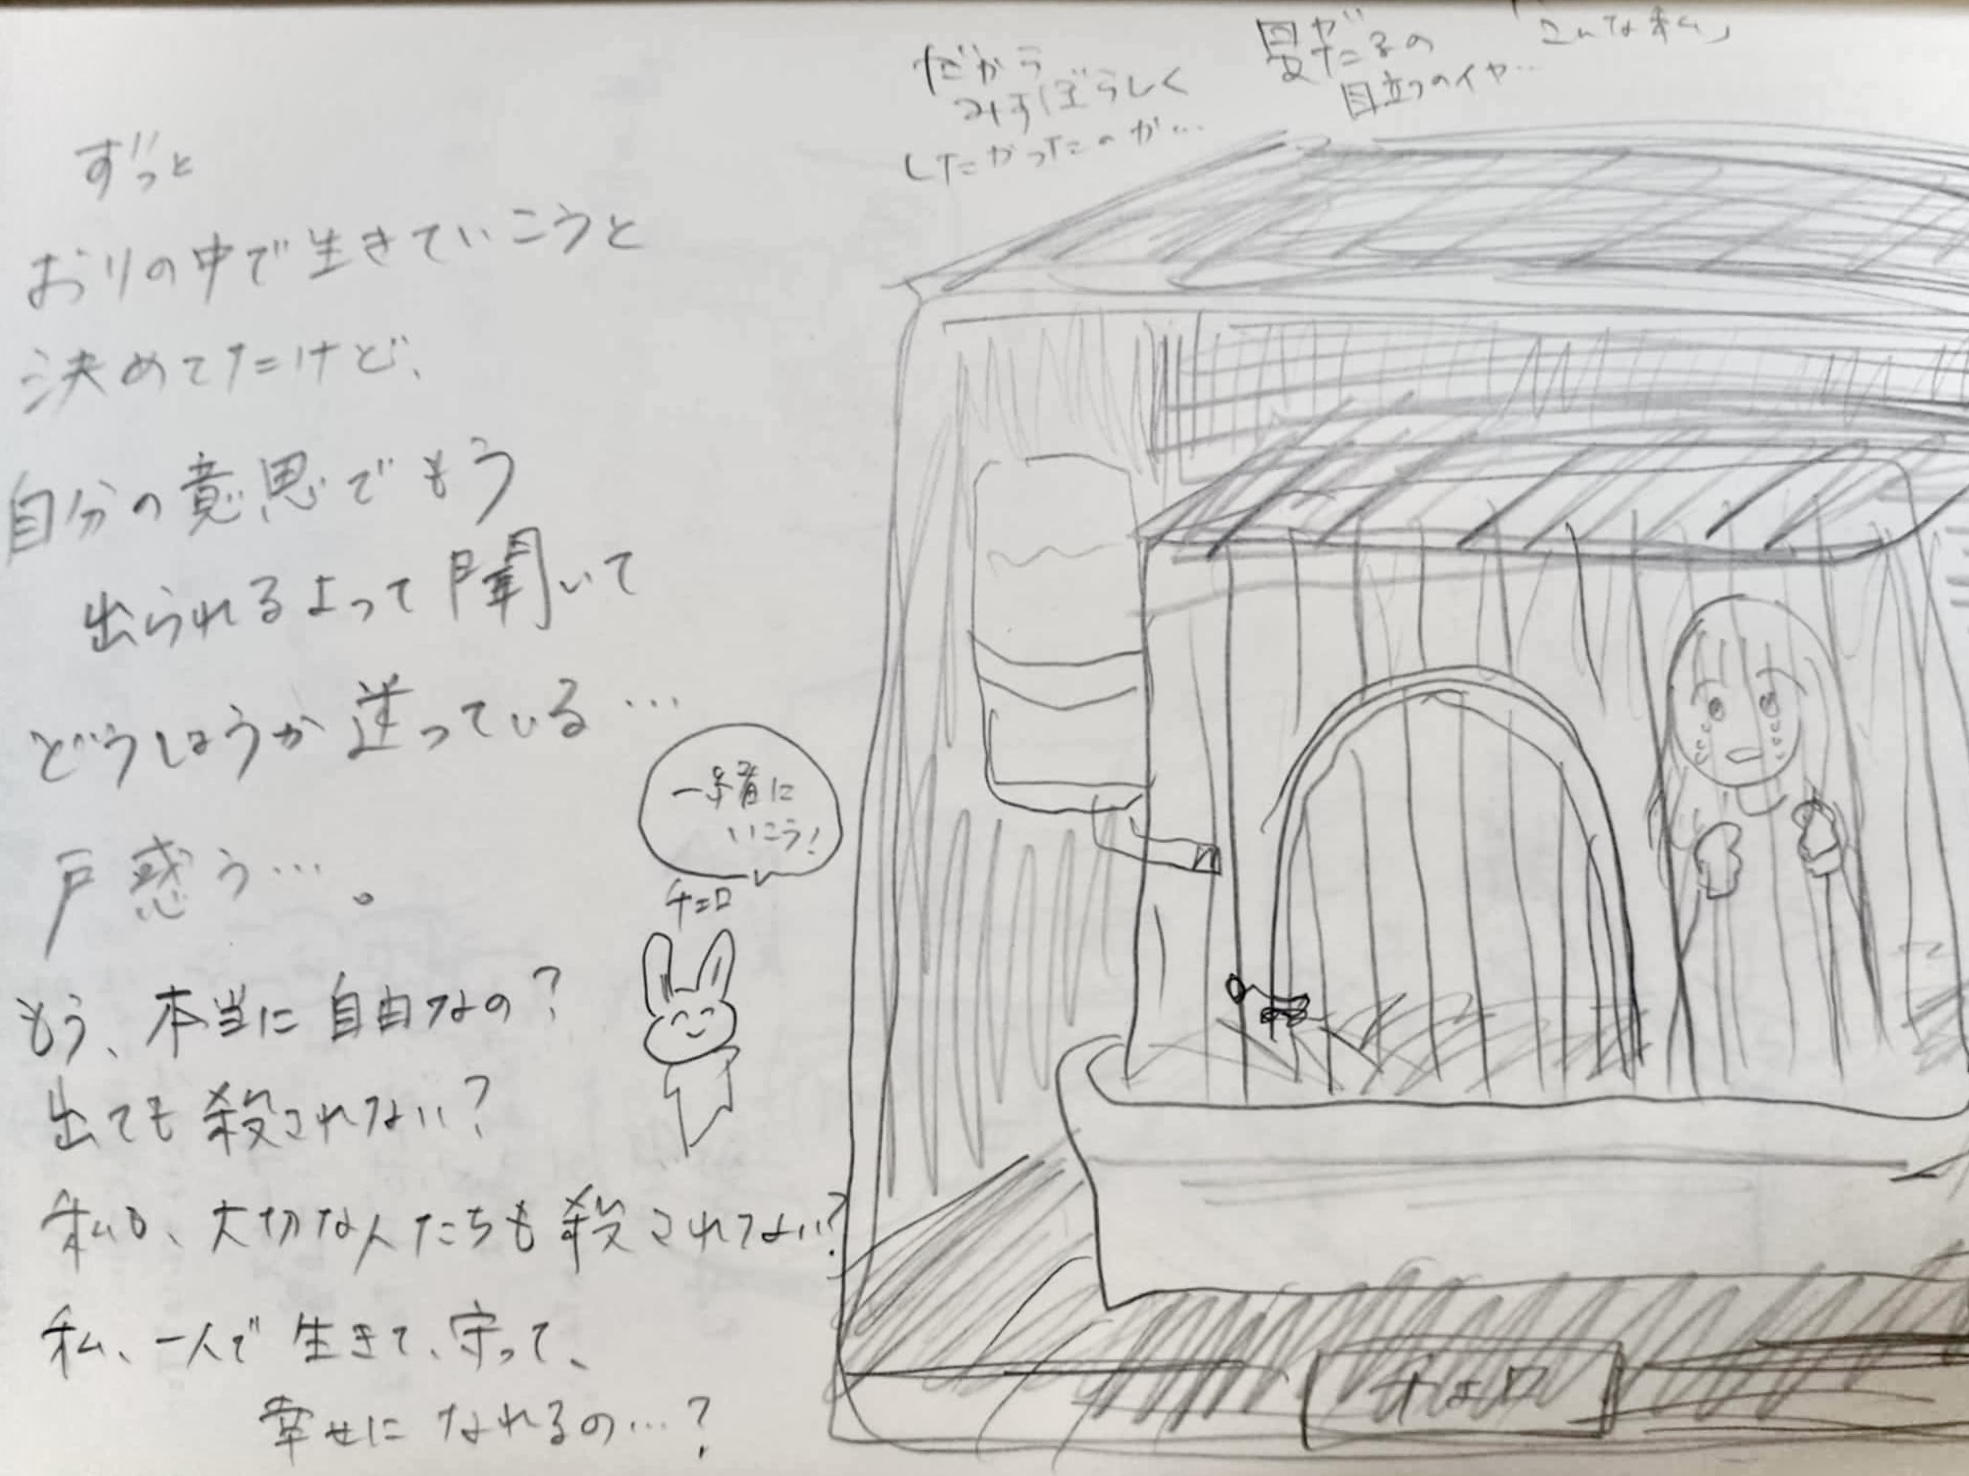 ずっと
おりの中で生きていこうと
決めてたけど、
自分の意思でもう
出られるよって聞いて
どうしようか迷っている…
戸惑う…。
もう、本当に自由なの?
出ても殺されない?
私も、大切な人たちも殺されてない?
私、一人で生きて、守って、
幸せになれるの…?
だから
みすぼらしく
したかったのが…
目立つのイヤ…
「こんな私」
一緒に
いこう!
チェロ
チェロ